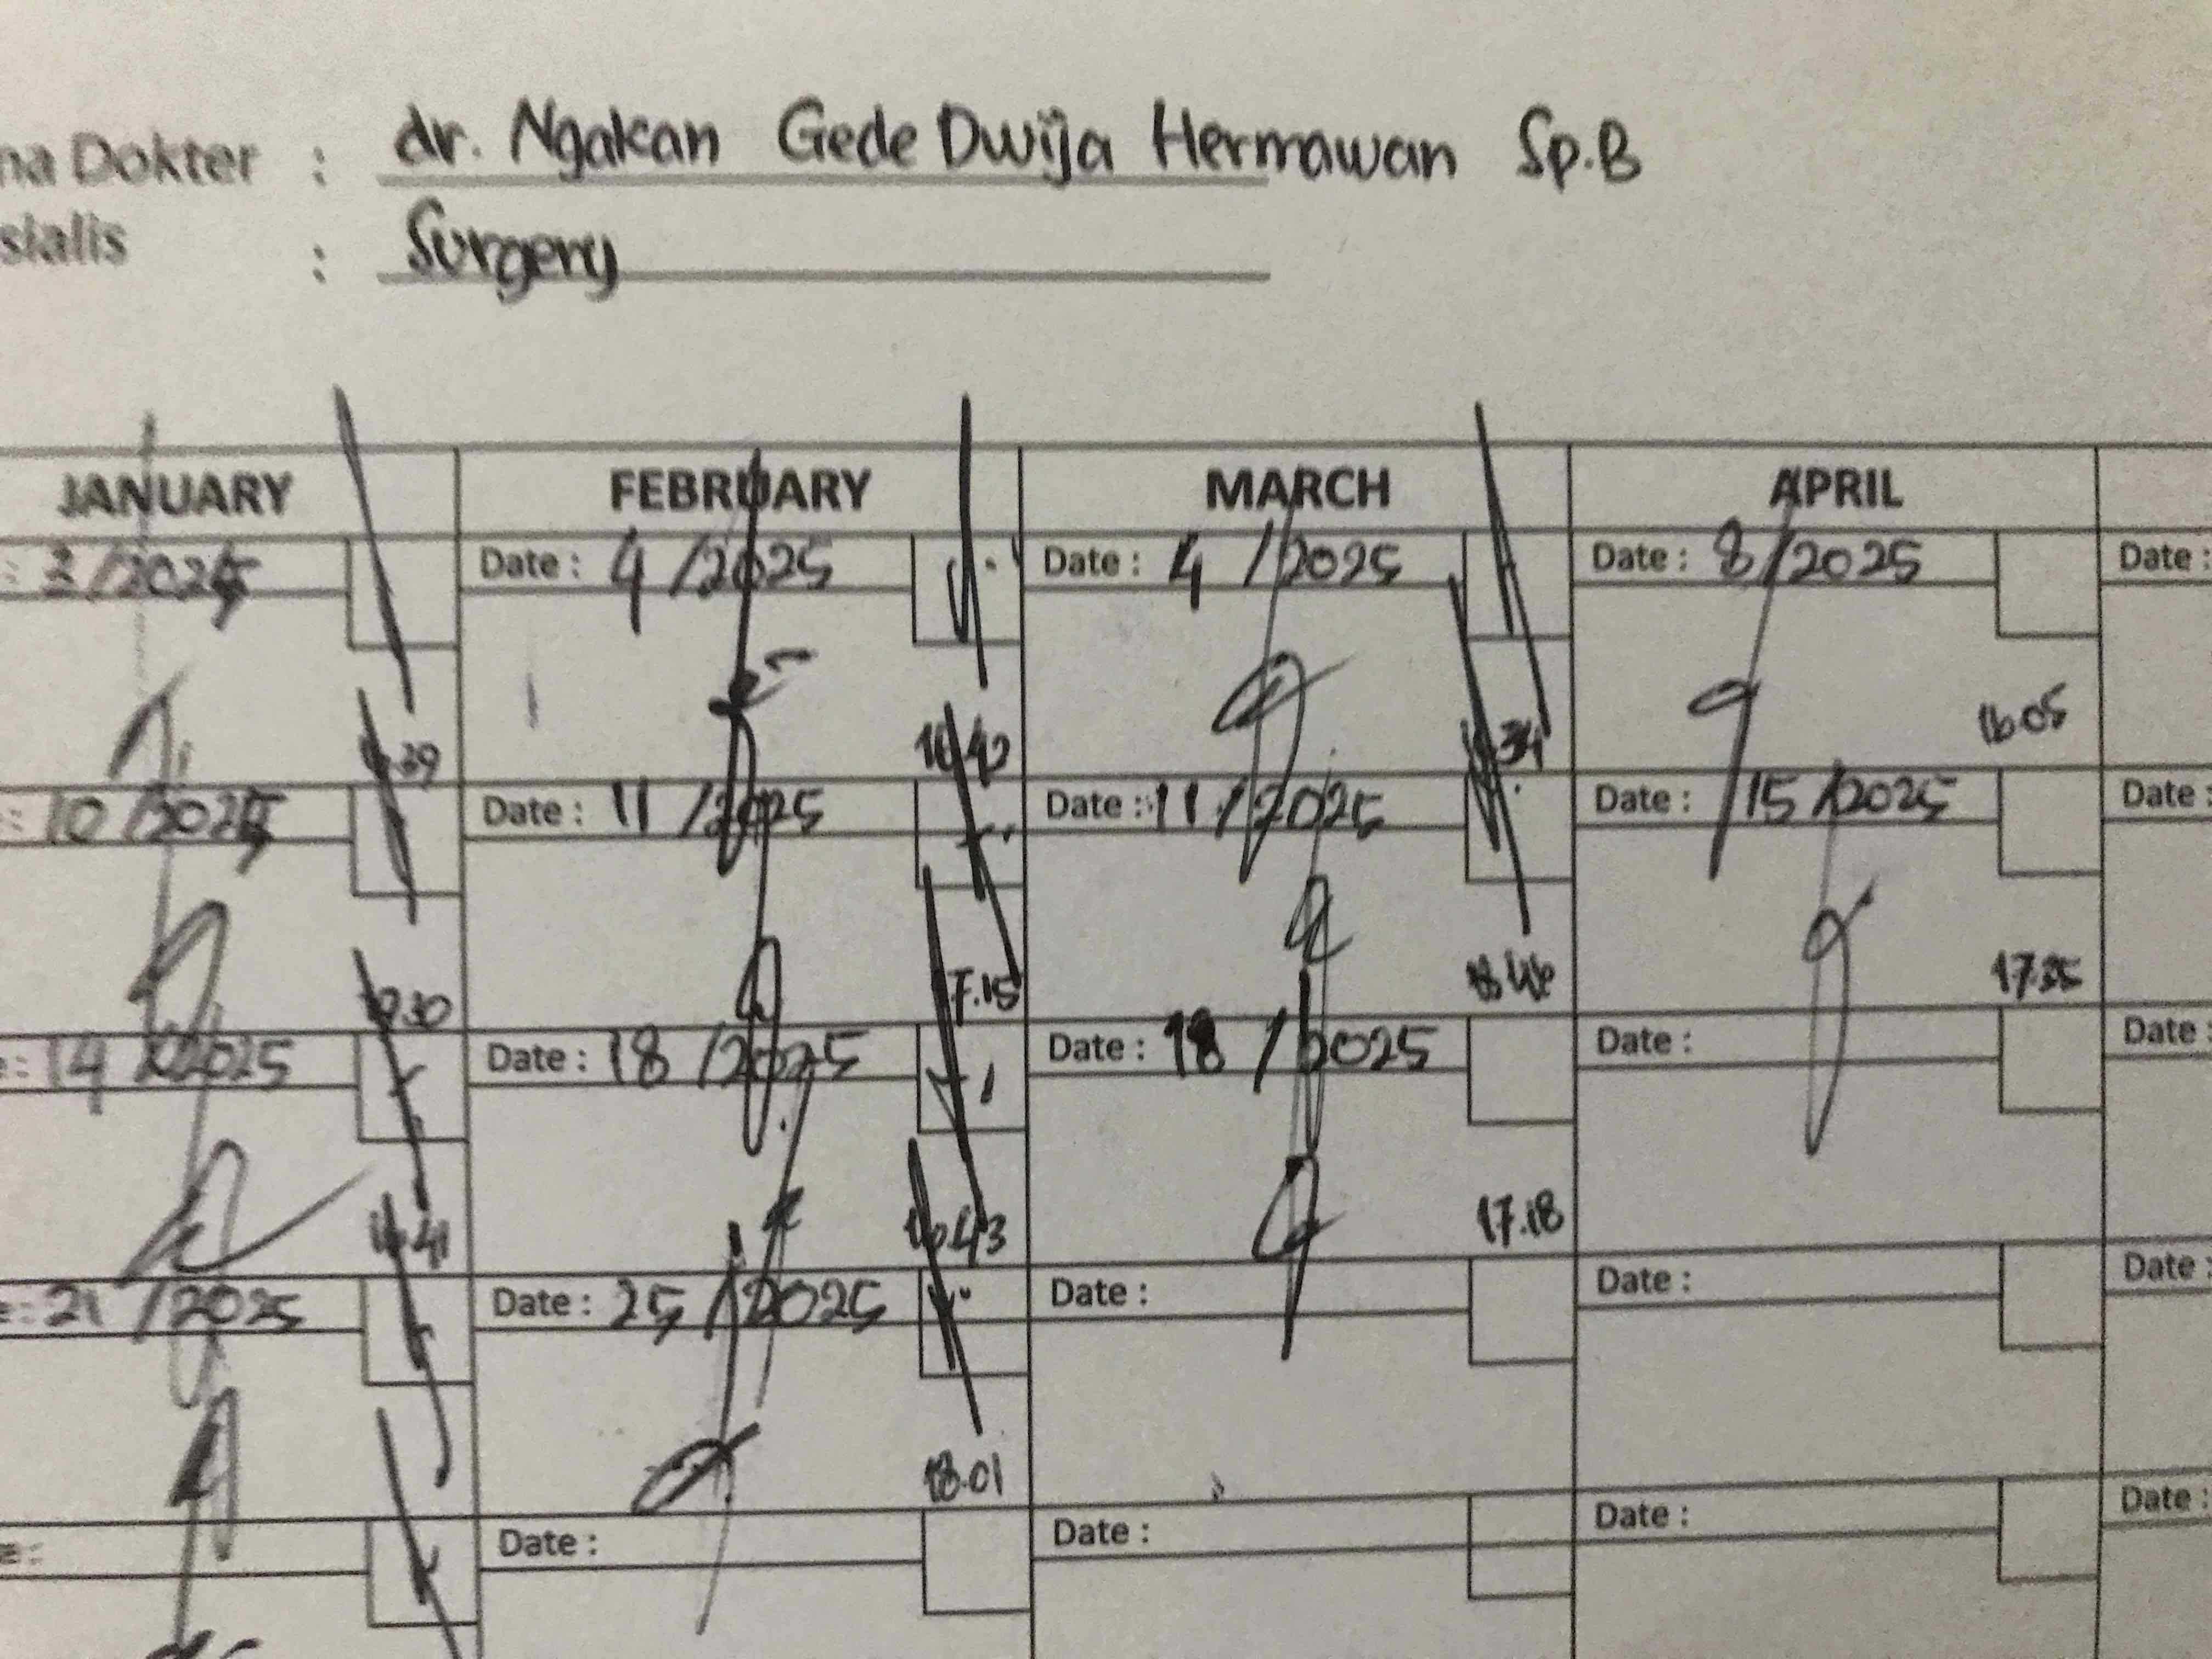 na Dokter : dr. Ngakan Gede Dwija Hermawan Sp.B
sialis : Surgery
JANUARY FEBRUARY MARCH APRIL
: 3/2025 Date : 4/2025 Date : 4/2025 Date : 8/2025 Date :
.39 16.42 .34 16.05
: 10/2025 Date : 11/2025 Date : 11/2025 Date : 15/2025 Date :
.30 17.15 18.46 17.35
e : 14/2025 Date : 18/2025 Date : 18/2025 Date : Date :
.41 16.43 17.18
e : 21/2025 Date : 25/2025 Date : Date : Date :
18.01
e : Date : Date : Date : Date :